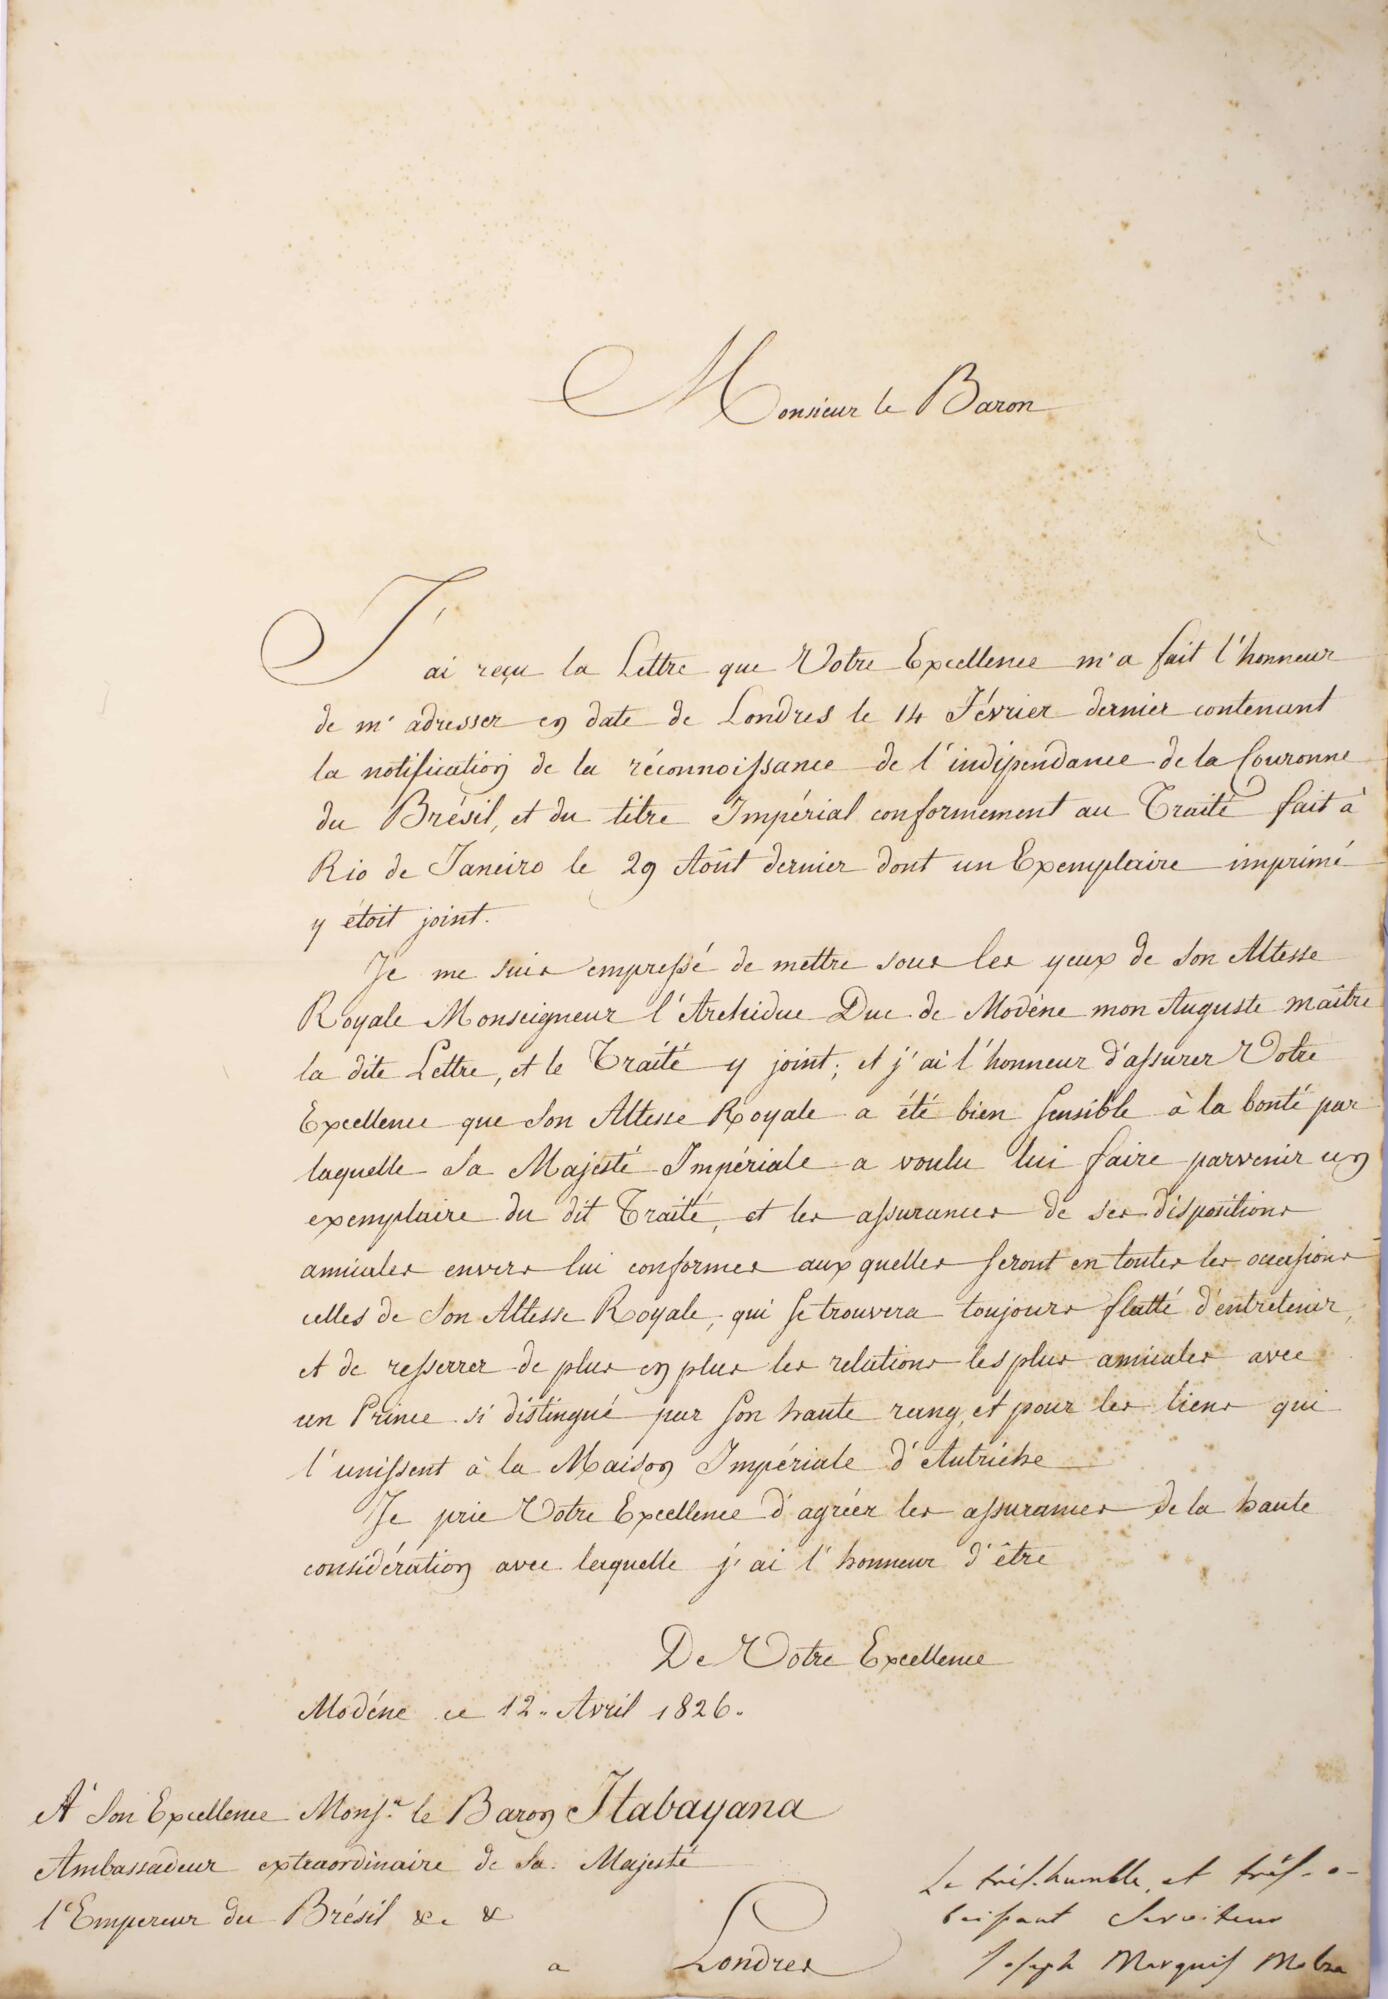 Monsieur le Baron
J'ai reçu la Lettre que Votre Excellence m'a fait l'honneur
de m'adresser en date de Londres le 14 Février dernier contenant
la notification de la réconnoissance de l'indipendance de la Couronne
du Brésil, et du titre Impérial conformement au Traité fait à
Rio de Janeiro le 29 Août dernier dont un Exemplaire imprimé
y étoit joint.
Je me suis empressé de mettre sous les yeux de Son Altesse
Royale Monseigneur l'Archiduc Duc de Modène mon Auguste maître
la dite Lettre, et le Traité y joint; et j'ai l'honneur d'assurer Votre
Excellence que Son Altesse Royale a été bien sensible à la bonté par
laquelle Sa Majesté Impériale a voulu lui faire parvenir un
exemplaire du dit Traité, et les assurances de ses dispositions
amicales envers lui conformes aux quelles seront en toutes les occasions
celles de Son Altesse Royale, qui se trouvera toujours flatté d'entretenir,
et de resserrer de plus en plus les relations les plus amicales avec
un Prince si distingué par son haute rang, et pour les liens qui
l'unissent à la Maison Impériale d'Autriche
Je prie Votre Excellence d'agréer les assurances de la haute
considération avec laquelle j'ai l'honneur d'être
De Votre Excellence
Modéne ce 12. Avril 1826.
A Son Excellence Mons.r le Baron Itabayana
Ambassadeur extraordinaire de Sa Majesté
l'Empereur du Brésil &. &
a Londres
Le très-humble, et très-o-
beissant Serviteur
Joseph Marquis Molza